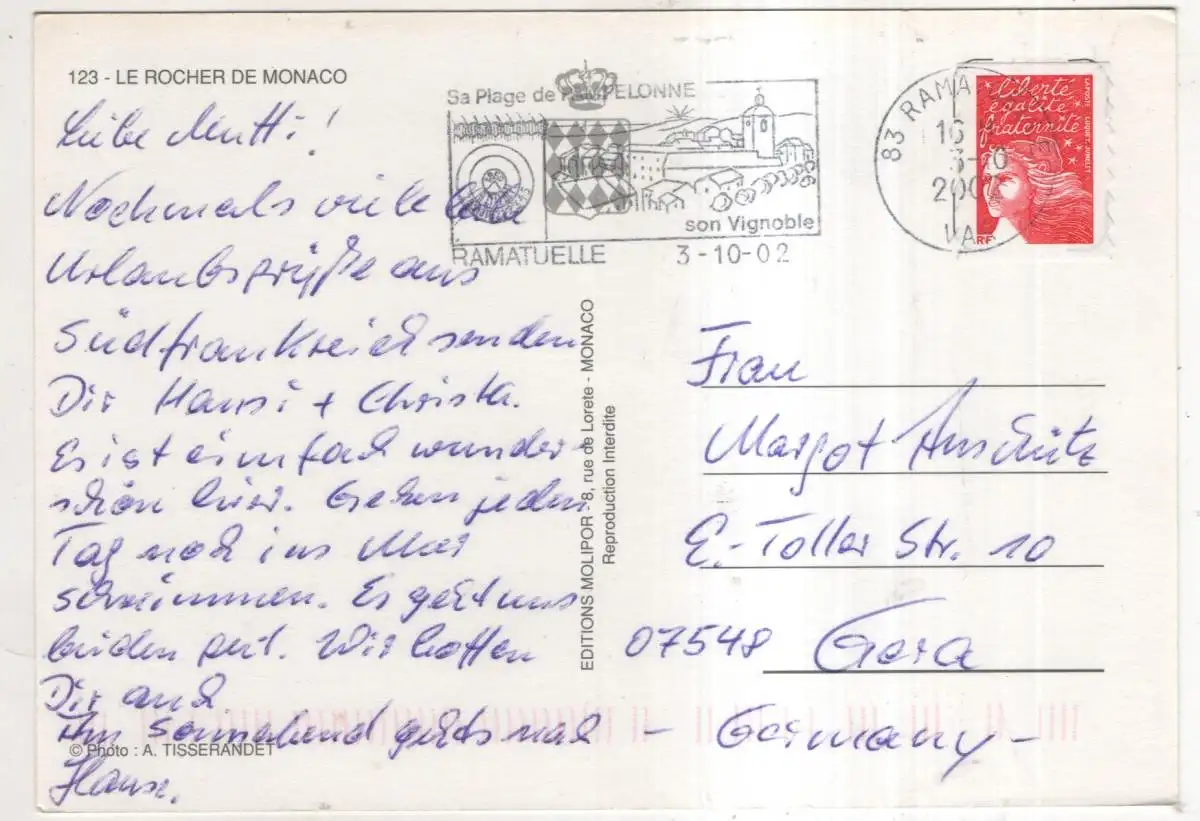 123 - LE ROCHER DE MONACO
Liebe Mutti!
Nochmals viele liebe
Urlaubsgrüße aus
Südfrankreich senden
Dir Hansi + Christa.
Es ist einfach wunder-
schön hier. Gehen jeden
Tag noch ins Meer
schwimmen. Es geht uns
beiden gut. Wir hoffen
Dir auch
Am Sonnabend gehts nach
Hause.
© Photo : A. TISSERANDET
Sa Plage de PAMPELONNE
son Vignoble
RAMATUELLE 3-10-02
83 RAMA
16
3-10
200
VA
liberté
égalité
fraternité
LAPOSTE LUQUET-JUMELET
RF
EDITIONS MOLIPOR - 8, rue de Lorete - MONACO
Reproduction Interdite
Frau
Margot Anschütz
E.-Toller Str. 10
07548 Gera
- Germany -